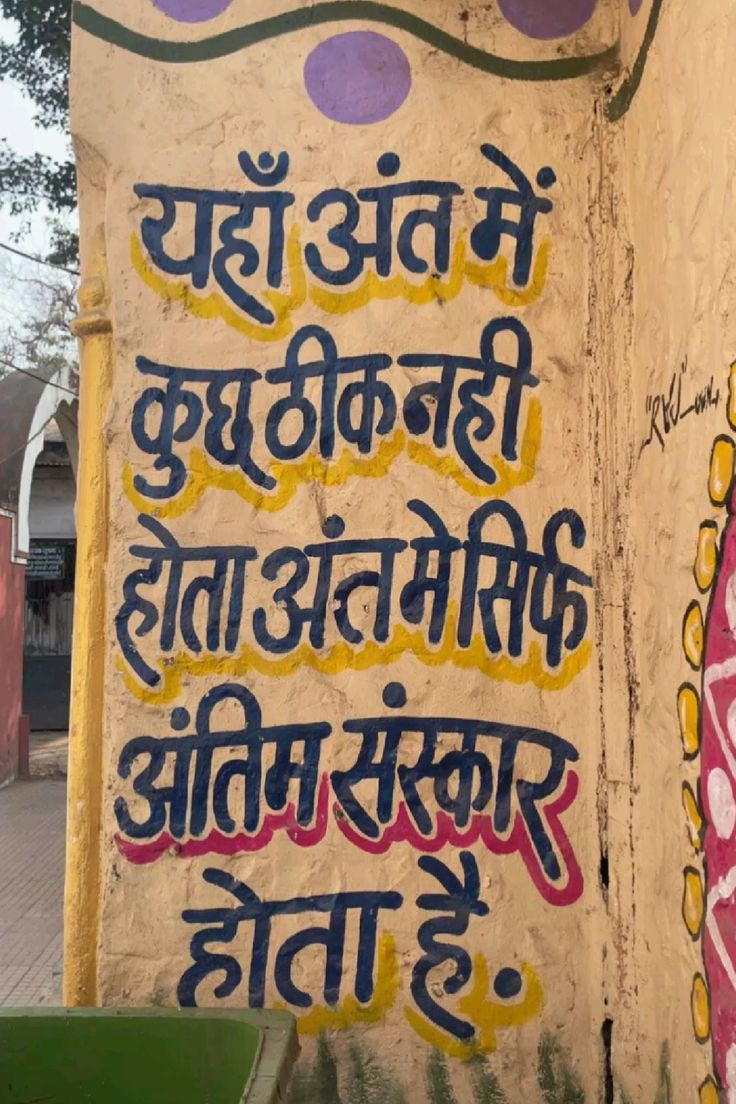 यहाँ अंत में
कुछ ठीक नही
होता अंत मे सिर्फ
अंतिम संस्कार
होता है.